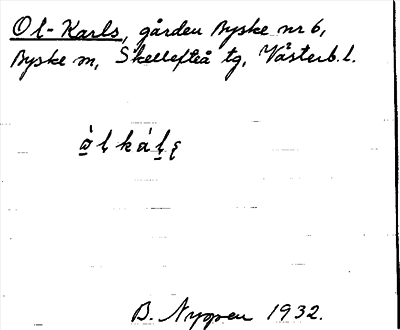 Ol-Karls, gården Byske nr 6,
Byske sn, Skellefteå tg, Västerb. l.
B. Nygren 1932.